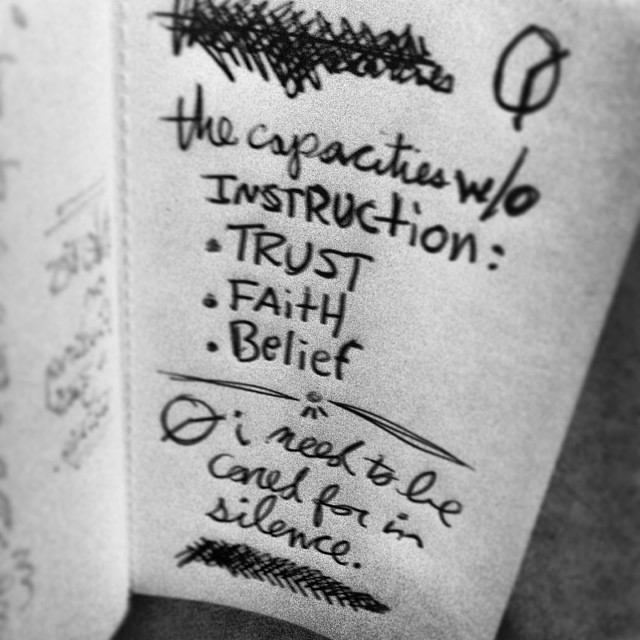 the capacities w/o
INSTRUCtion:
• TRUST
• FAitH
• Belief
i need to be
cared for in
silence.